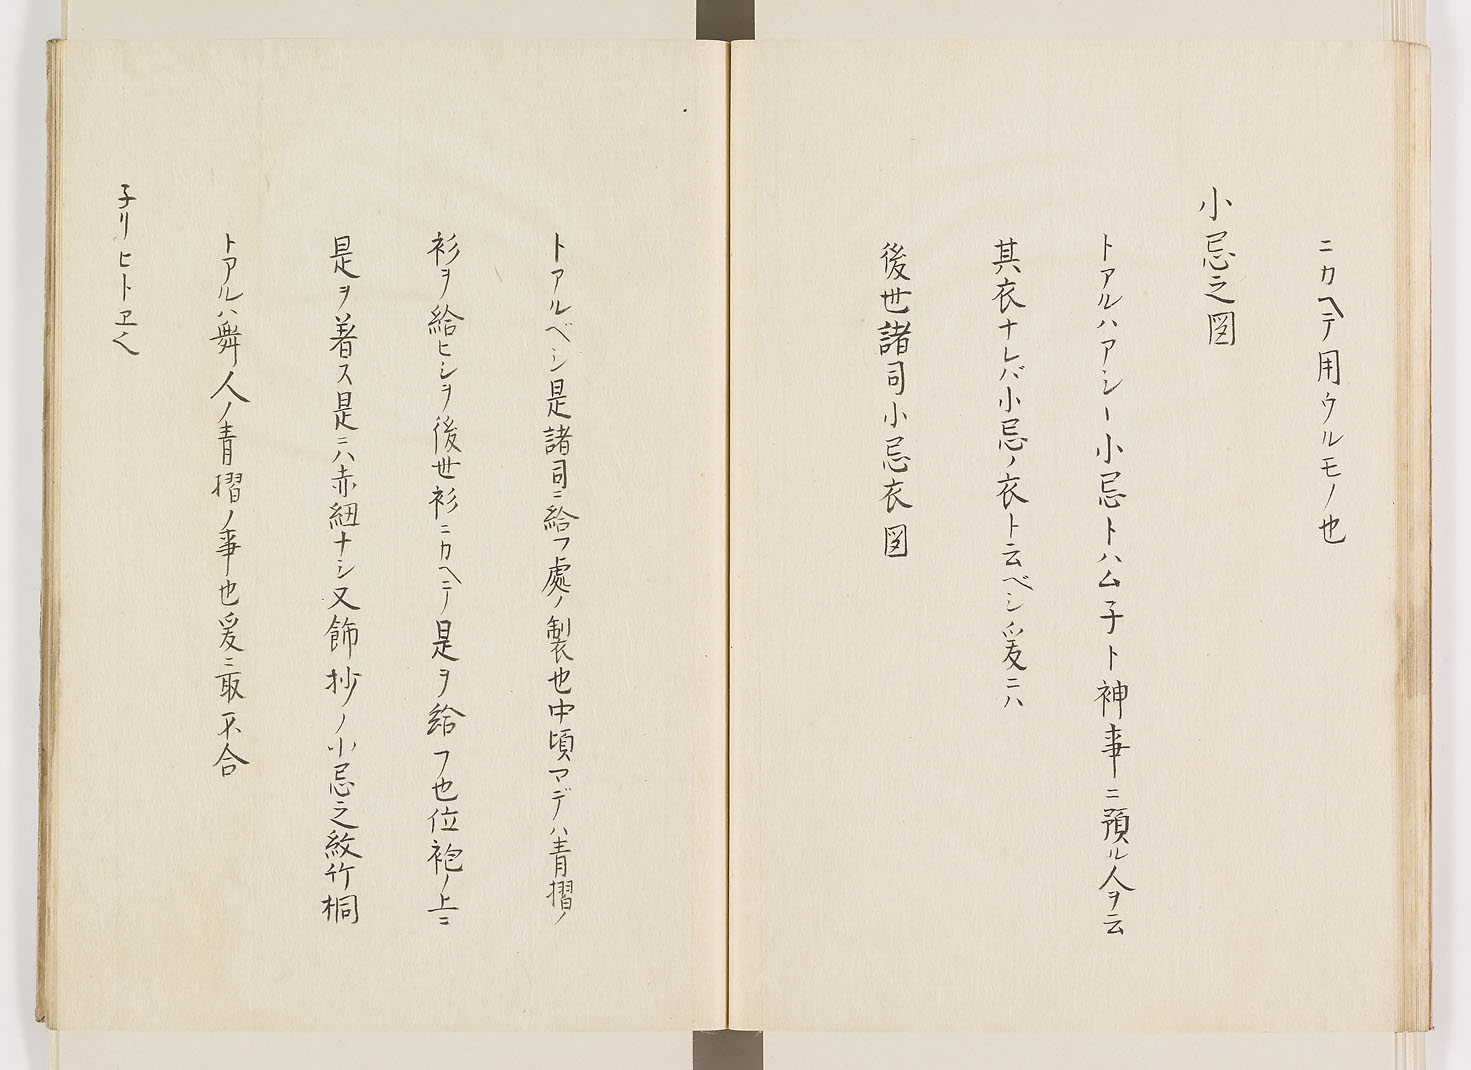 ニカヘテ用ウルモノ也
小忌之図
トアルハアシー小忌トハム子ト神事ニ預ル人ヲ云
其衣ナレバ小忌ノ衣ト云ベシ爰ニハ
後世諸司小忌衣図
トアルベシ是諸司ニ給フ處ノ製也中頃マデハ青摺ノ
衫ヲ給ヒシヲ後世衫ニカヘテ是ヲ給フ也位袍ノ上ニ
是ヲ着ス是ニハ赤紐ナシ又飾抄ノ小忌之紋竹桐
トアルハ舞人ノ青摺ノ事也爰ニ取不合
子リヒトヱ